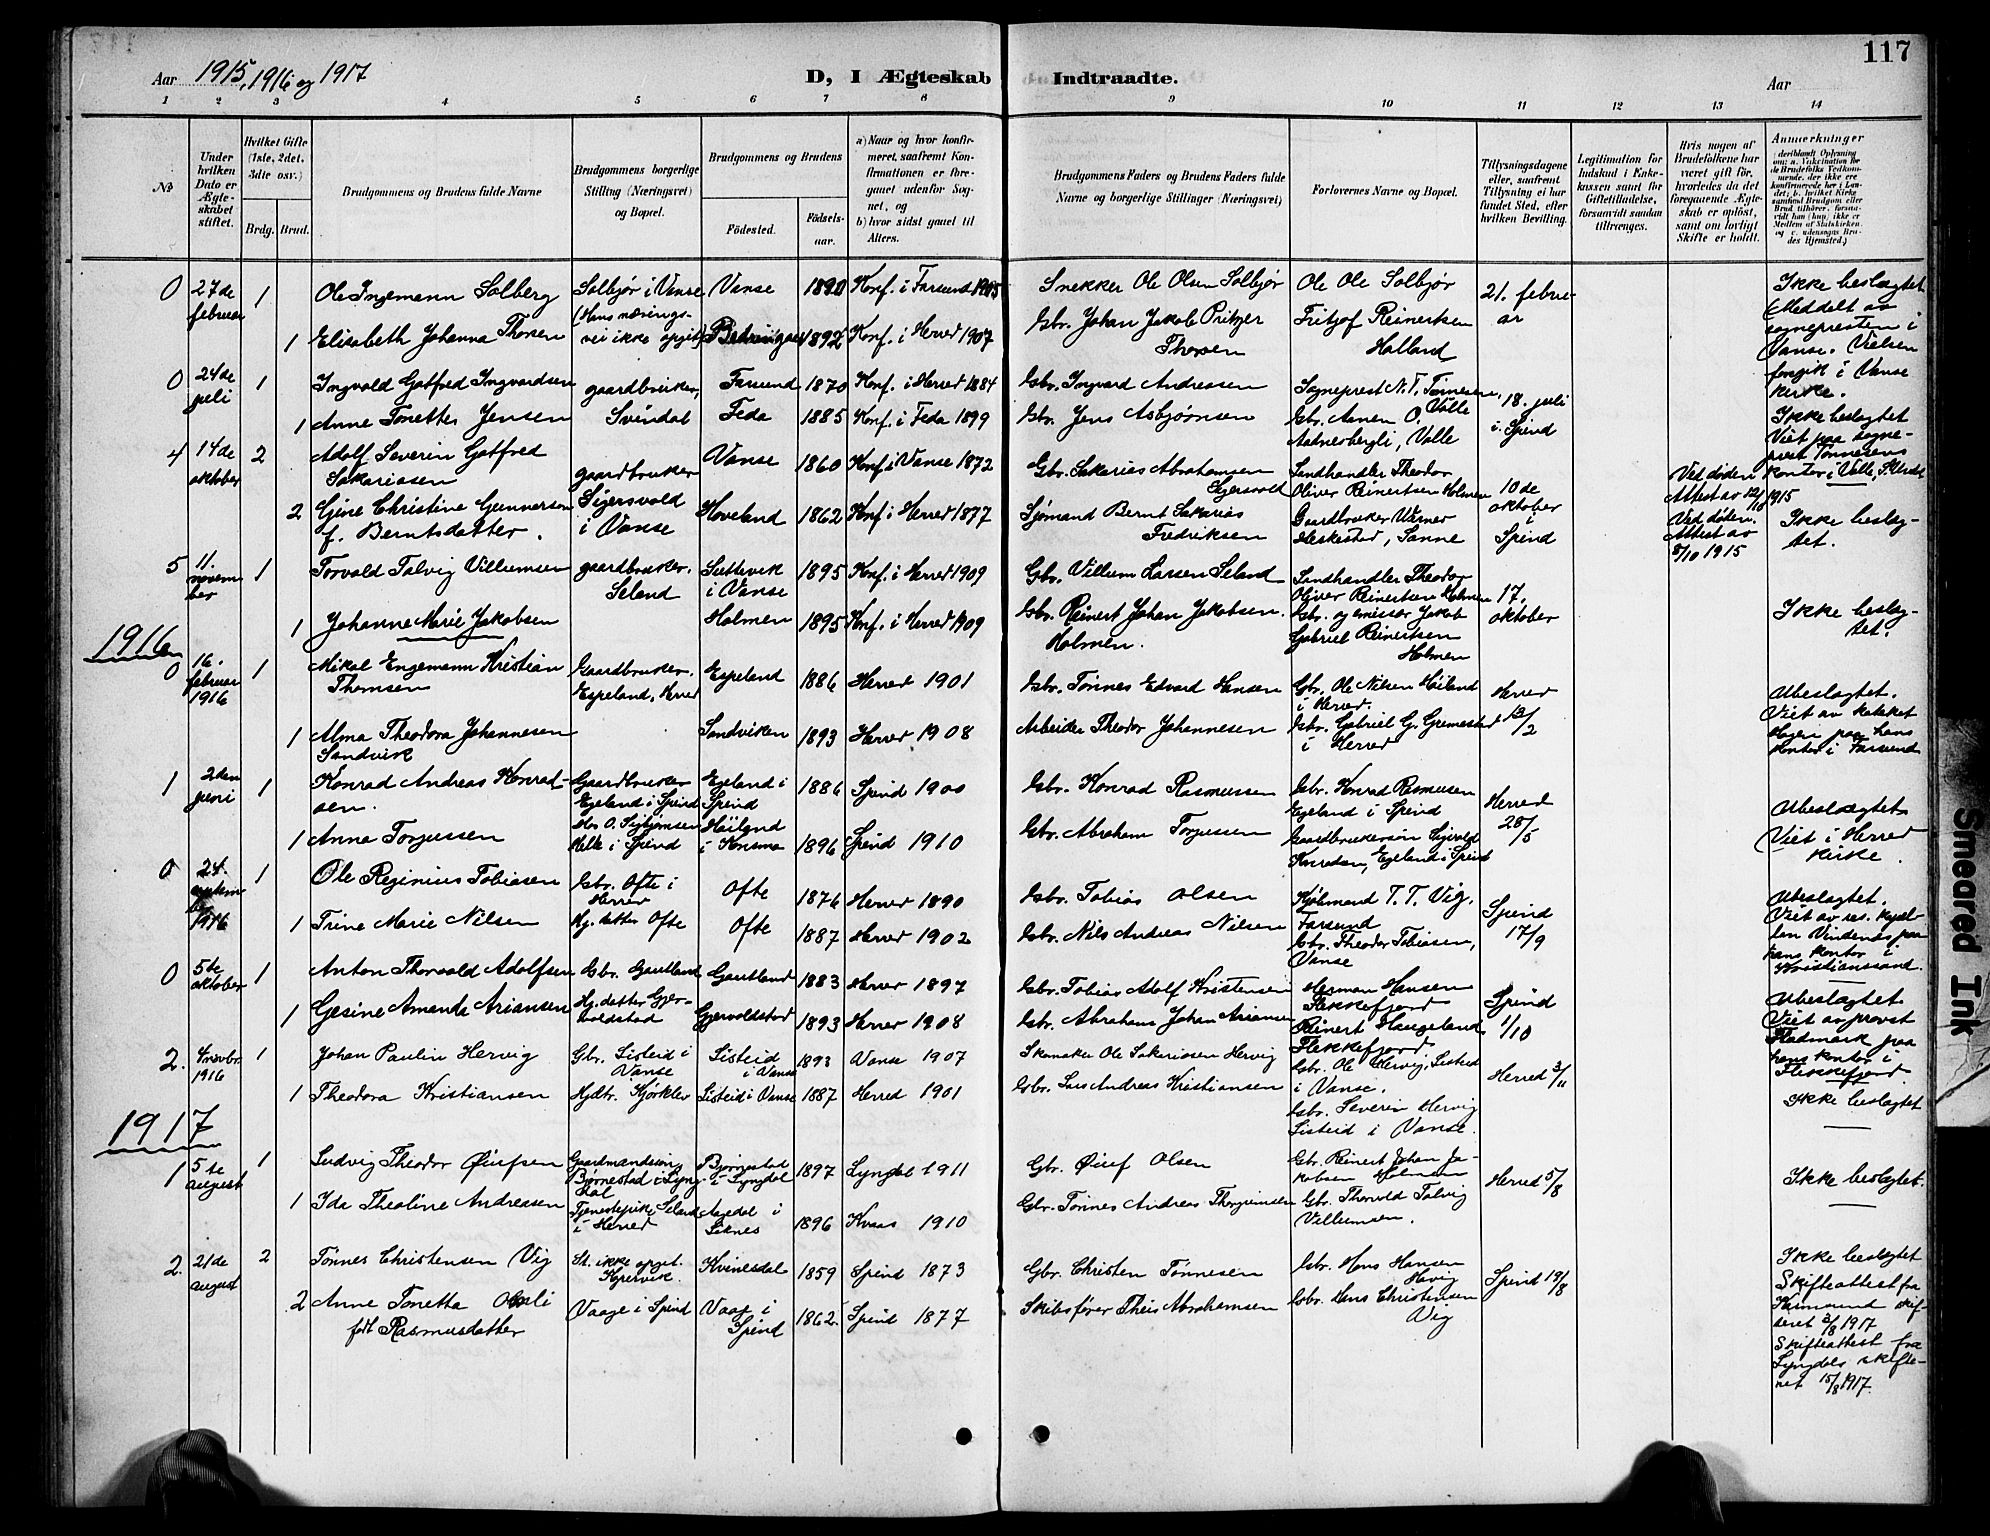 117
Aar 1915, 1916 og 1917
D, I Ægteskab Indtraadte.
Aar
1 2 3 4 5 6 7 8 9 10 11 12 13 14
No
Under hvilken Dato er Ægteskabet stiftet.
Hvilket Gifte (1ste, 2det, 3die osv.)
Brdg. Brud.
Brudgommens og Brudens fulde Navne
Brudgommens borgerlige Stilling (Næringsvei) og Bopæl.
Brudgommens og Brudens
Fødested.
Fødselsaar.
a) Naar og hvor konfirmeret, saafremt Konfirmationen er foregaaet udenfor Sognet, og
b) hvor sidst gaaet til Alters.
Brudgommens Faders og Brudens Faders fulde Navne og borgerlige Stillinger (Næringsvei)
Forlovernes Navne og Bopæl.
Tillysningsdagene eller, saafremt Tillysning ei har fundet Sted, efter hvilken Bevilling.
Legitimation for Indskud i Enkekassen samt for Giftetilladelse, forsaavidt saadan tiltrænges.
Hvis nogen af Brudefolkene har været gift før, hvorledes da det foregaaende Ægteskab er opløst, samt om lovligt Skifte er holdt.
Anmerkninger
0 27de februar 1 Ole Ingemann Solberg Solbjør i Vanse (Hans næringsvei ikke opgit) Vanse 1890 Konf. i Farsund 1905 Snekker Ole Olsen Solbjør Ole Ole Solbjør 21. februar Ikke beslægtet (Meddelt av sognepresten i Vanse. Vielsen foregik i Vanse kirke.
1 Elisabeth Johanna Thorsen 1892 Konf. i Herred 1907 Gbr. Johan Jakob Pritzer Thorsen Fritjof Reinertsen Halland
0 24de juli 1 Ingvald Gotfred Ingvardsen gaardbruker, Svindal Farsund 1870 Konf. i Herred 1884 Gbr. Ingvard Andreasen Sogneprest N. T. Tønnesen, Valle 18. juli i Spind Ikke beslægtet Viet paa sogneprest Tønnesens kontor i Valle,
1 Anne Tonette Jensen Feda 1885 Konf. i Feda 1899 Gbr. Jens Asbjørnsen Gbr. Aanen O. Aadnebergli, Valle
4 14de oktober 2 Adolf Severin Gotfred Sakariasen gaardbruker Sigersvold i Vanse Vanse 1860 Konf i Vanse 1872 Gbr. Sakarias Abrahamsen Sigersvold Landhandler Theodor Oliver Reinertsen Holmen 10de oktober i Spind Ved døden Attest av 12/10 1915
2 Gine Christine Gunnarsen f. Berntsdatter. Hoveland 1862 Konf i Herred 1877 Sjømand Bernt Sakarias Fredriksen Gaardbruker Werner Heskestad, Sanne Ved døden. Attest av 8/10 1915 Ikke beslægtet.
5 11. november 1 Torvald Talvig Villumsen gaardbruker. Seland i Vanse 1895 Konf. i Herred 1909 Gbr. Villum Larsen Seland Landhandler Theodor Oliver Reinertsen Holmen 17. oktober Ikke beslægtet.
1 Johanne Marie Jakobsen Holmen 1895 Konf. i Herred 1909 Gbr. Reinert Johan Jakobsen. Holmen. Gbr. og emissær Jakob Gabriel Reinertsen Holmen
1916
0 16. februar 1916 1 Mikal Engemann Kristian Thomsen Gaardbruker. Espeland, Herred Espeland 1886 Herred 1901 Gbr. Tønnes Edvard Hansen Gbr. Ole Nilsen Høiland i Herred. Herred 13/2 Ubeslægtet. Viet av kateket Hagen paa hans kontor i Farsund
1 Alma Theodora Johannesen Sandvik Sandviken 1893 Herred 1908 Arbeider Theodor Johannesen Gbr. Gabriel G. Gremestad i Herred
1 2den juni 1 Konrad Andreas Konradsen. Gaardbruker Egeland i Spind Egeland i Spind 1886 Spind 1900 Gbr. Konrad Rasmussen Gbr. Konrad Rasmusen Egeland i Spind Herred 28/5 Ubeslægtet Viet i Herred kirke.
1 Anna Torjussen Hos O. Sigbjørnsen i Spind Høiland i Konsmo 1896 Spind 1910 Gbr. Abraham Torjussen Gaardbrukersøn Sigvald Konradsen, Egeland i Spind
0 24. september 1916 1 Ole Reginius Tobiasen Gbr. Ofte i Herred Ofte 1876 Herred 1890 Gbr. Tobias Olsen Kjøbmand T. T. Vig, Farsund Spind 17/9 Ubeslægtet. Viet av res. kapellan Vindenes paa hans kontor i Kristianssand.
1 Trine Marie Nilsen Hj. datter Ofte Ofte 1887 Herred 1902 Gbr. Nils Andreas Nilsen Gbr. Theodor Tobiasen, Vanse
0 5te oktober 1 Anton Thorvald Adolfsen Gbr. Gautland Gautland 1883 Herred 1897 Gbr. Tobias Adolf Kristensen Herman Hansen Flekkefjord Spind 1/10 Ubeslægtet Viet av provst Fladmark paa hans kontor i Flekkefjord.
1 Gesine Amanda Ariansen Hj. datter Gjervoldstad Gjervoldstad 1893 Herred 1908 Gbr. Abraham Johan Ariansen Reinert Haugeland Flekkefjord
2. 4 novbr. 1916 1 Johan Paulin Hervig Gbr. Listeid i Vanse Listeid i Vanse 1893 Vanse 1907 Skomaker Ole Sakariasen Hervig Gbr. Ole Hervig, Listeid i Vanse. Herred 3/11 Ikke beslægtet
1 Theodora Kristiansen Hjdtr. Kjørklev Listeid i Vanse 1887 Herred 1901 Gbr. Lars Andreas Kristiansen Gbr. Severin Hervig Listeid i Vanse.
1917
1 5te august 1 Ludvig Theodor Øiufsen Gaardmandssøn, Bjørnestad i Lyngdal Bjørnestad i Lyngdal 1897 Lyngdal 1911 Gbr. Øiuf Olsen Gbr. Reinert Johan Jakobsen Holmen Herred 5/8 Ikke beslægtet.
1 Ida Theoline Andreasen Tjenestepike, Seland i Herred Aagedal i 1896 Kvaas 1910 Gbr. Tønnes Andreas Gbr. Thorvald Talvig Villumsen.
2. 21de august 2 Tønnes Christensen Vig St. ikke opgit. Kjørvik. Kvinesdal 1859 Spind 1873 Gbr. Christen Tønnesen Gbr. Hans Hansen Spind 19/8 Ikke beslægtet Skifteattest fra skifteret 2/8 1917
2 Anne Tonetta født Rasmusdatter Vaage i Spind Vaage i Spind 1862 Spind 1877 Skibsfører Theis Abrahamsen Gbr. Hans Christensen Vig Skifteattest fra Lyngdals skifteret 15/8 1917.
Smeared Ink